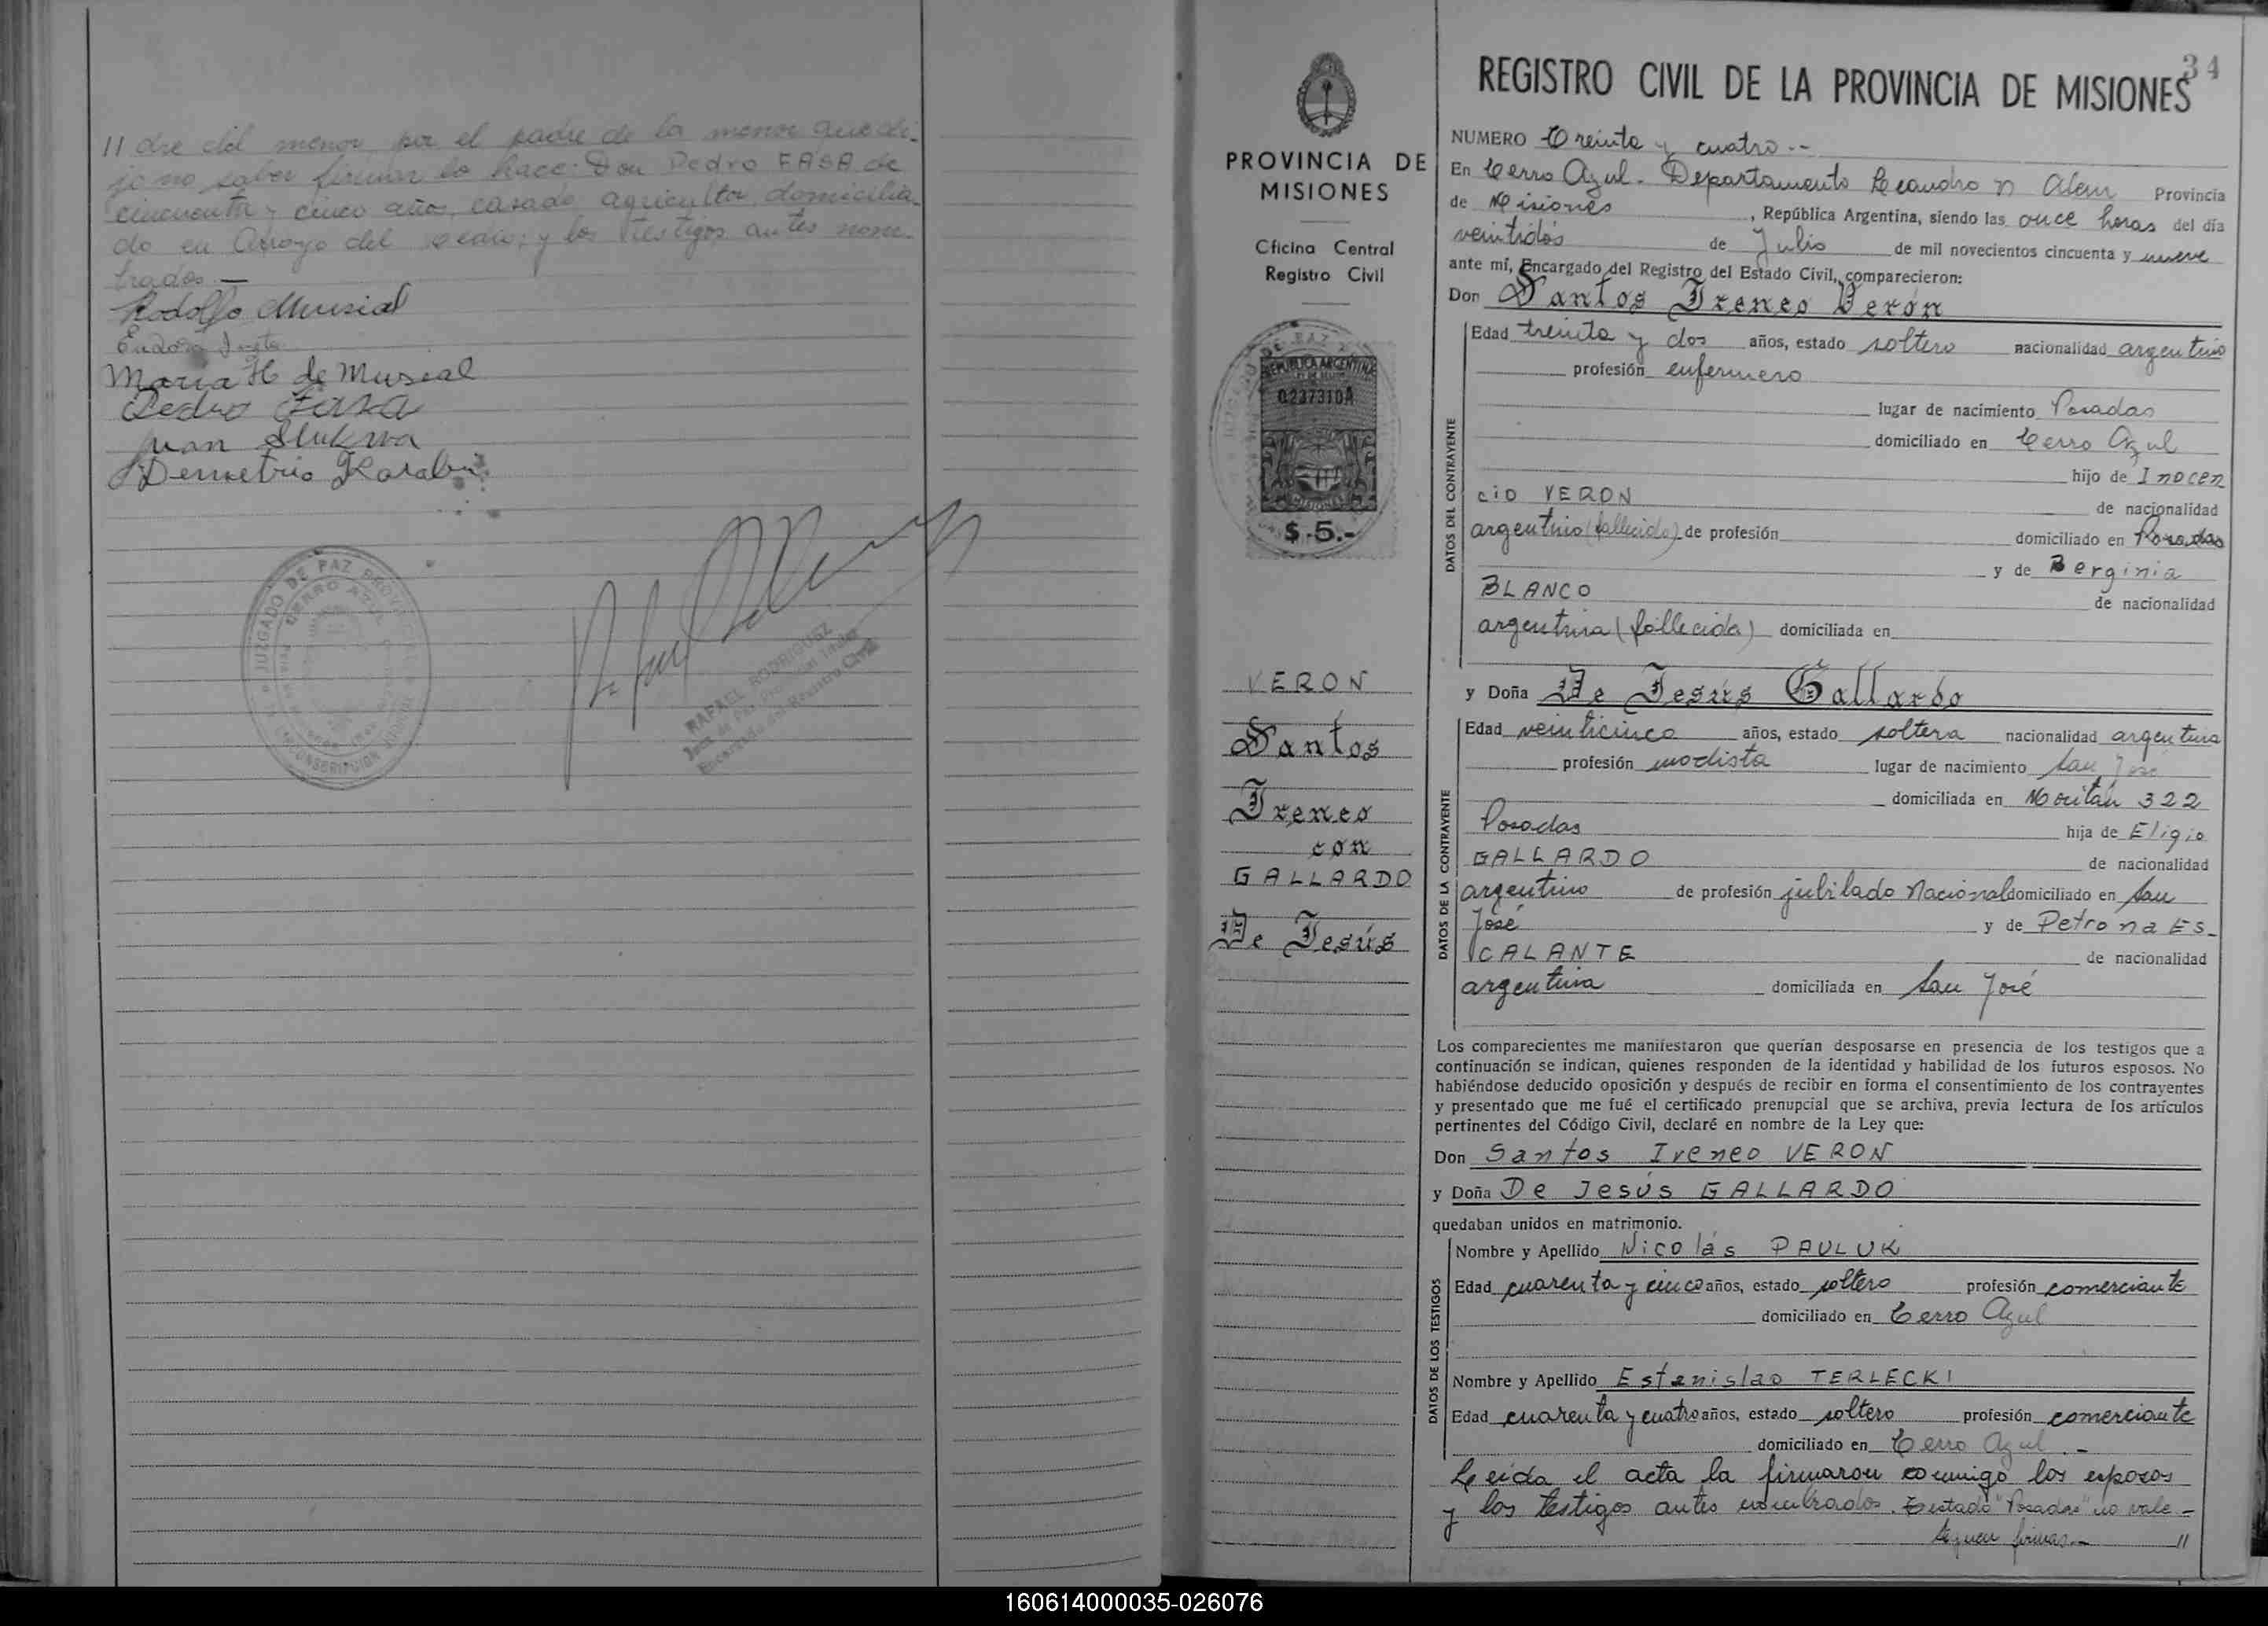 11 dre del menor por el padre de la menor que di-
jo no saber firmar lo hace: Don Pedro FASA de
cincuenta y cinco años, casado, agricultor, domicilia-
do en Arroyo del Medio; y los testigos antes nom-
brados.—
Rodolfo Musial
Maria H de Museal
Pedro Fasa
Juan
Demetrio
JUZGADO DE PAZ
CERRO AZUL
CIRCUNSCRIPCION JUDICIAL
RAFAEL RODRIGUEZ
Juez de Paz Provincial Titular
Encargado del Registro Civil
PROVINCIA DE
MISIONES
Oficina Central
Registro Civil
REPUBLICA ARGENTINA
0237310A
MISIONES
$ 5.-
VERON
Santos
Ireneo
con
GALLARDO
De Jesús
34
REGISTRO CIVIL DE LA PROVINCIA DE MISIONES
NUMERO Treinta y cuatro.--
En Cerro Azul. Departamento Leandro N Alem Provincia
de Misiones, República Argentina, siendo las once horas del día
veintidós de Julio de mil novecientos cincuenta y nueve
ante mí, Encargado del Registro del Estado Civil, comparecieron:
Don Santos Ireneo Verón
DATOS DEL CONTRAYENTE
Edad treinta y dos años, estado soltero nacionalidad argentino
profesión enfermero
lugar de nacimiento Posadas
domiciliado en Cerro Azul
hijo de Inocen
cio VERON de nacionalidad
argentino (fallecido) de profesión domiciliado en Posadas
y de Berginia
BLANCO de nacionalidad
argentina (fallecida) domiciliada en
y Doña De Jesús Gallardo
DATOS DE LA CONTRAYENTE
Edad veinticinco años, estado soltera nacionalidad argentina
profesión modista lugar de nacimiento San José
domiciliada en Moritán 322
Posadas hija de Eligio
GALLARDO de nacionalidad
argentino de profesión jubilado Nacional domiciliado en San
José y de Petrona ES-
CALANTE de nacionalidad
argentina domiciliada en San José
Los comparecientes me manifestaron que querían desposarse en presencia de los testigos que a
continuación se indican, quienes responden de la identidad y habilidad de los futuros esposos. No
habiéndose deducido oposición y después de recibir en forma el consentimiento de los contrayentes
y presentado que me fué el certificado prenupcial que se archiva, previa lectura de los artículos
pertinentes del Código Civil, declaré en nombre de la Ley que:
Don Santos Ireneo VERON
y Doña De Jesús GALLARDO
quedaban unidos en matrimonio.
DATOS DE LOS TESTIGOS
Nombre y Apellido Nicolás PAULUK
Edad cuarenta y cinco años, estado soltero profesión comerciante
domiciliado en Cerro Azul
Nombre y Apellido Estanislao TERLECKI
Edad cuarenta y cuatro años, estado soltero profesión comerciante
domiciliado en Cerro Azul.-
Leída el acta la firmaron conmigo los esposos
y los testigos antes nombrados. Testado "Posadas" no vale-
Siguen firmas.- 11
160614000035-026076